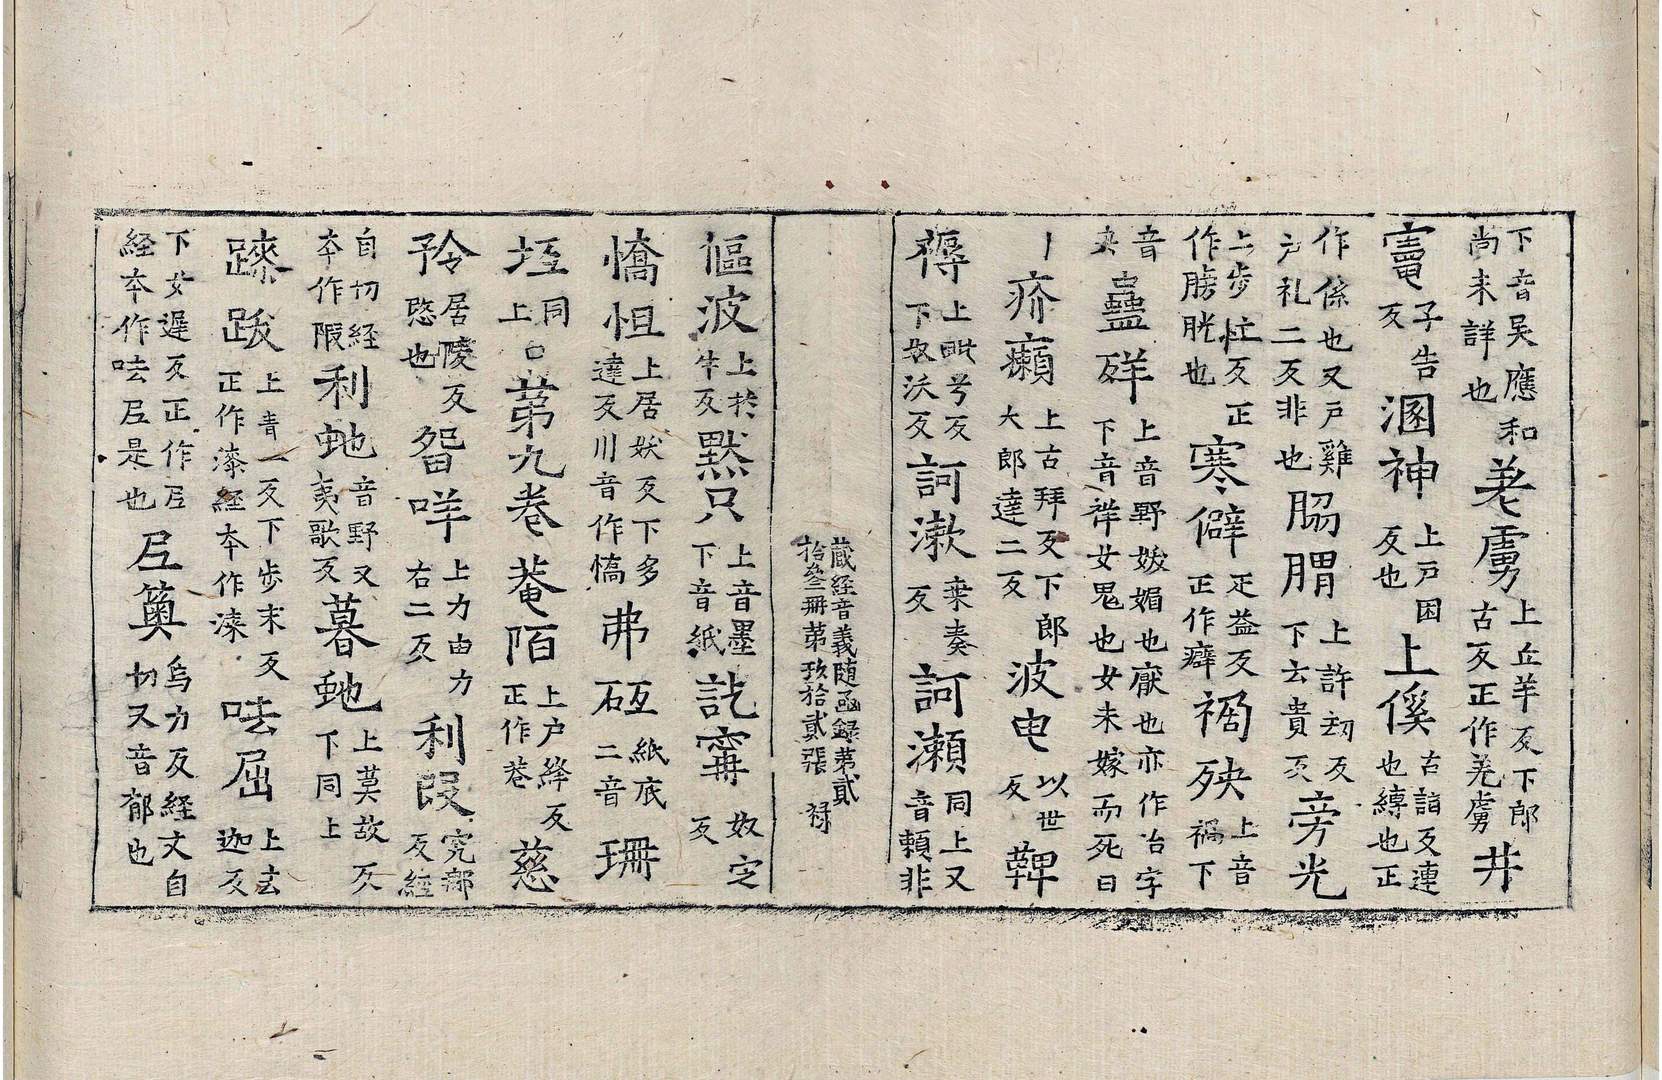 下音吴應和尚未詳也𦍑虜上丘羊反下郎古反正作羌虜井
竈子告反溷神上戸困反也上傒古詣反連也縛也正
作係也又戸雞户礼二反非也脇𦛨上許刼反下云貴反旁光
上步忙反正作膀胱也寒僻疋益反正作癖禍殃上音禍下
音央蠱𣧑上音野妭媚也厭也亦作冶字下音祥女鬼也女未嫁而死曰
丨疥癩上古拜反下郎大郎達二反波电以世反鞞
𥛑上毗兮反下奴沃反訶漱桒奏反訶瀬同上又音賴非
藏經音義随函録第貳拾叁冊苐玖拾貳張 禄
傴波上於牛反默只上音墨下音紙訖寗奴定反
憍怛上居妖反下多達反川音作憍弗砡紙底二音珊
抂同上苐九卷菴陌上户絳反正作巷慈
矝居陵反愍也㽞咩上力由力右二反利叚究部反經
自切經本作限利虵音野又夷歌反暮虵上莫故反下同上
蹀跋上青一反下步末反正作漆經本作溱呿屈上去迦反
下女遲反正作𡰱經本作呿𡰱是也𡰱薁烏力反經文自切又音郁也